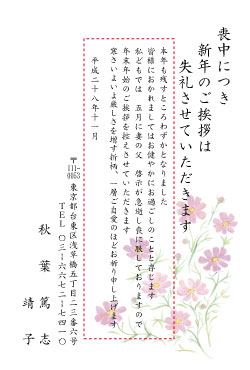 喪中につき
新年のご挨拶は
失礼させていただきます
本年も残すところわずかとなりました
皆様におかれましてはお健やかにお過ごしのことと存じます
私どもでは 五月に妻の父 啓示が急逝し喪に服しておりますので
年末年始のご挨拶を控えさせていただきます
寒さいよいよ厳しさを増す折柄、一層ご自愛のほどお祈り申し上げます
平成二十八年十一月
〒111-0053
東京都台東区浅草橋五丁目二三番六号
TEL 〇三-六六七二-七四一〇
秋葉 篤志
靖子